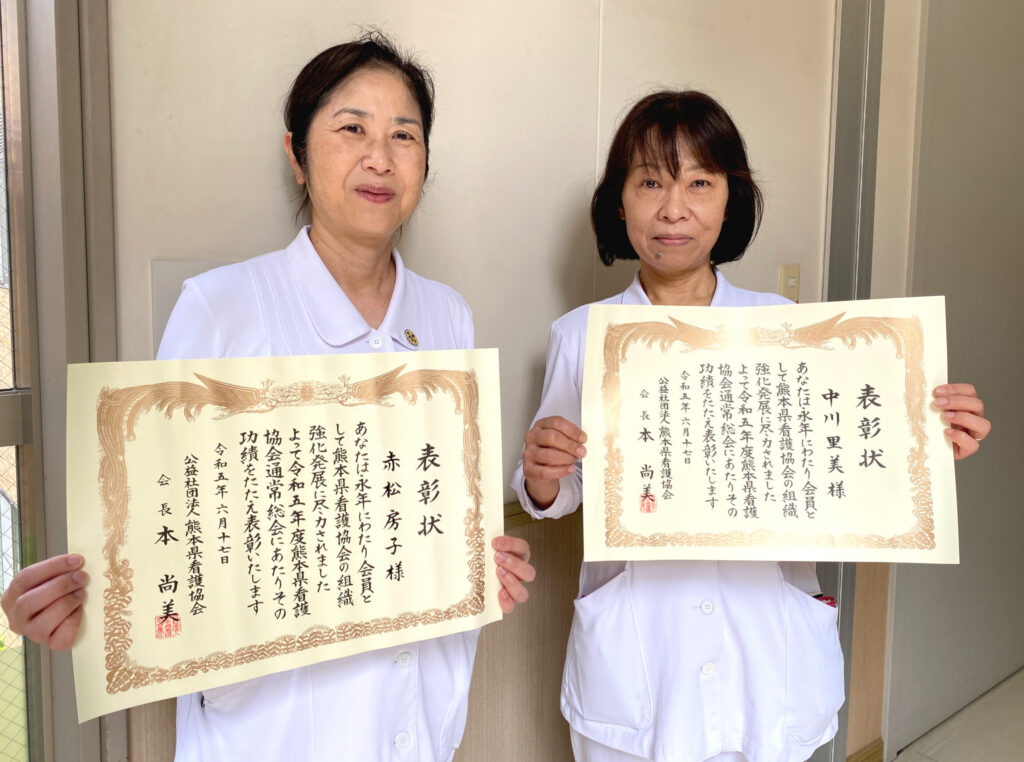 表彰状
赤松房子様
あなたは永年にわたり会員と
して熊本県看護協会の組織
強化発展に尽力されました
よって令和五年度熊本県看護
協会通常総会にあたりその
功績をたたえ表彰いたします
令和五年六月十七日
公益社団法人熊本県看護協会
会長本尚美
表彰状
中川里美様
あなたは永年にわたり会員と
して熊本県看護協会の組織
強化発展に尽力されました
よって令和五年度熊本県看護
協会通常総会にあたりその
功績をたたえ表彰いたします
令和五年六月十七日
公益社団法人熊本県看護協会
会長本尚美